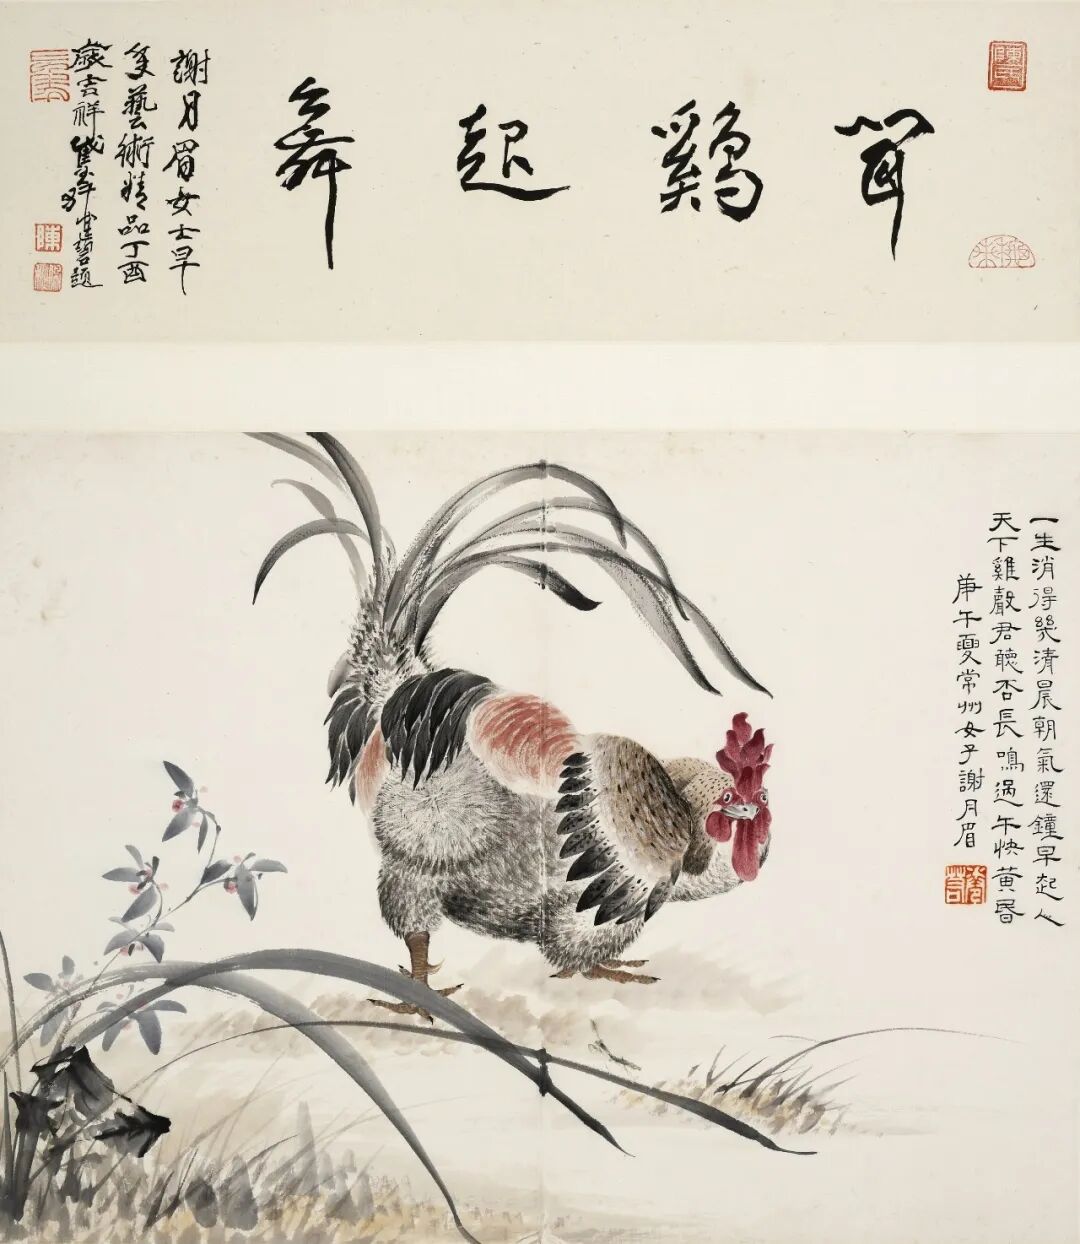 聞鷄起舞
謝月眉女士早
年藝術精品丁酉
歲吉祥 健碧題
陳
一生消得幾清晨朝氣還鐘早起人
天下雞聲君聽否長鳴過午快黃昏
庚午夏常州女子謝月眉